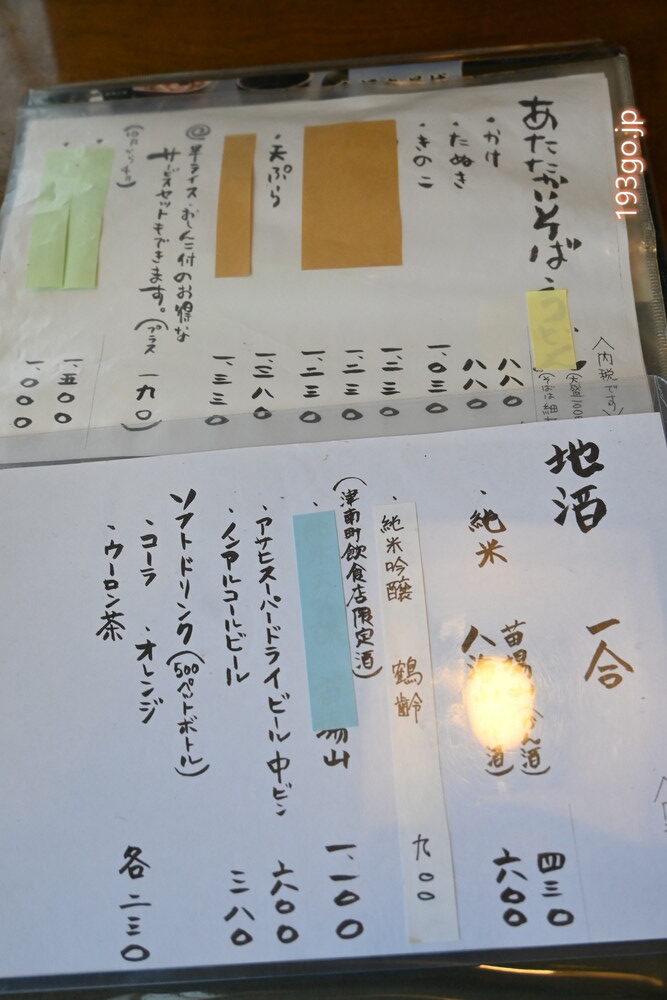 あたたかいそば
・かけ 八八〇
・たぬき 八八〇
・きのこ 一、〇三〇
一、二三〇
一、二三〇
一、二三〇
・天ぷら 一、三八〇
一、三三〇
@半ライス・おしんこ付のお得な
サービスセットもできます。(プラス 一九〇)
一、五〇〇
一、〇〇〇
内税です
地酒 一合
・純米 苗場 酒) 四三〇
八 酒) 六〇〇
・純米吟醸 鶴齢 九〇〇
(津南町飲食店限定酒)
場山 一、一〇〇
・アサヒスーパードライビール中ビン 六〇〇
・ノンアルコールビール 三八〇
ソフトドリンク(500ペットボトル)
・コーラ ・オレンジ 各二三〇
・ウーロン茶
193go.jp